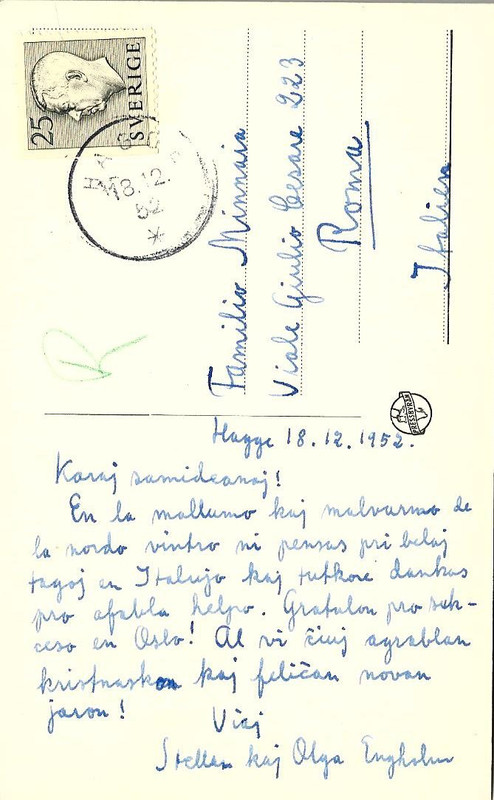 25
SVERIGE
18.12.
52
Familio Minnaia
Viale Giulio Cesare 223
Roma
Italien
R
PRESSBYRÅN
Hagge 18.12.1952.
Karaj samideanoj!
En la mallumo kaj malvarmo de
la norda vintro ni pensas pri belaj
tagoj en Italujo kaj tutkore dankas
pro afabla helpo. Gratulon pro suk-
ceso en Oslo! Al vi ĉiuj agrablan
kristnaskon kaj feliĉan novan
jaron!
Viaj
Stellan kaj Olga Engholm